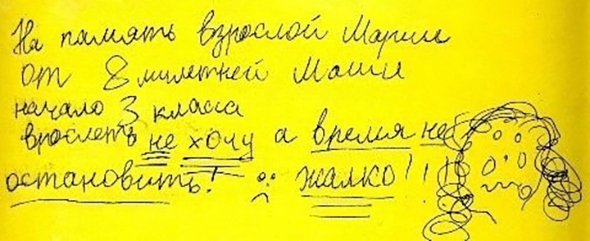 На память взрослой Марине
от 8милетней Маши
начало 3 класса
врослеть не хочу а время не
остановить! :( жалко!!!